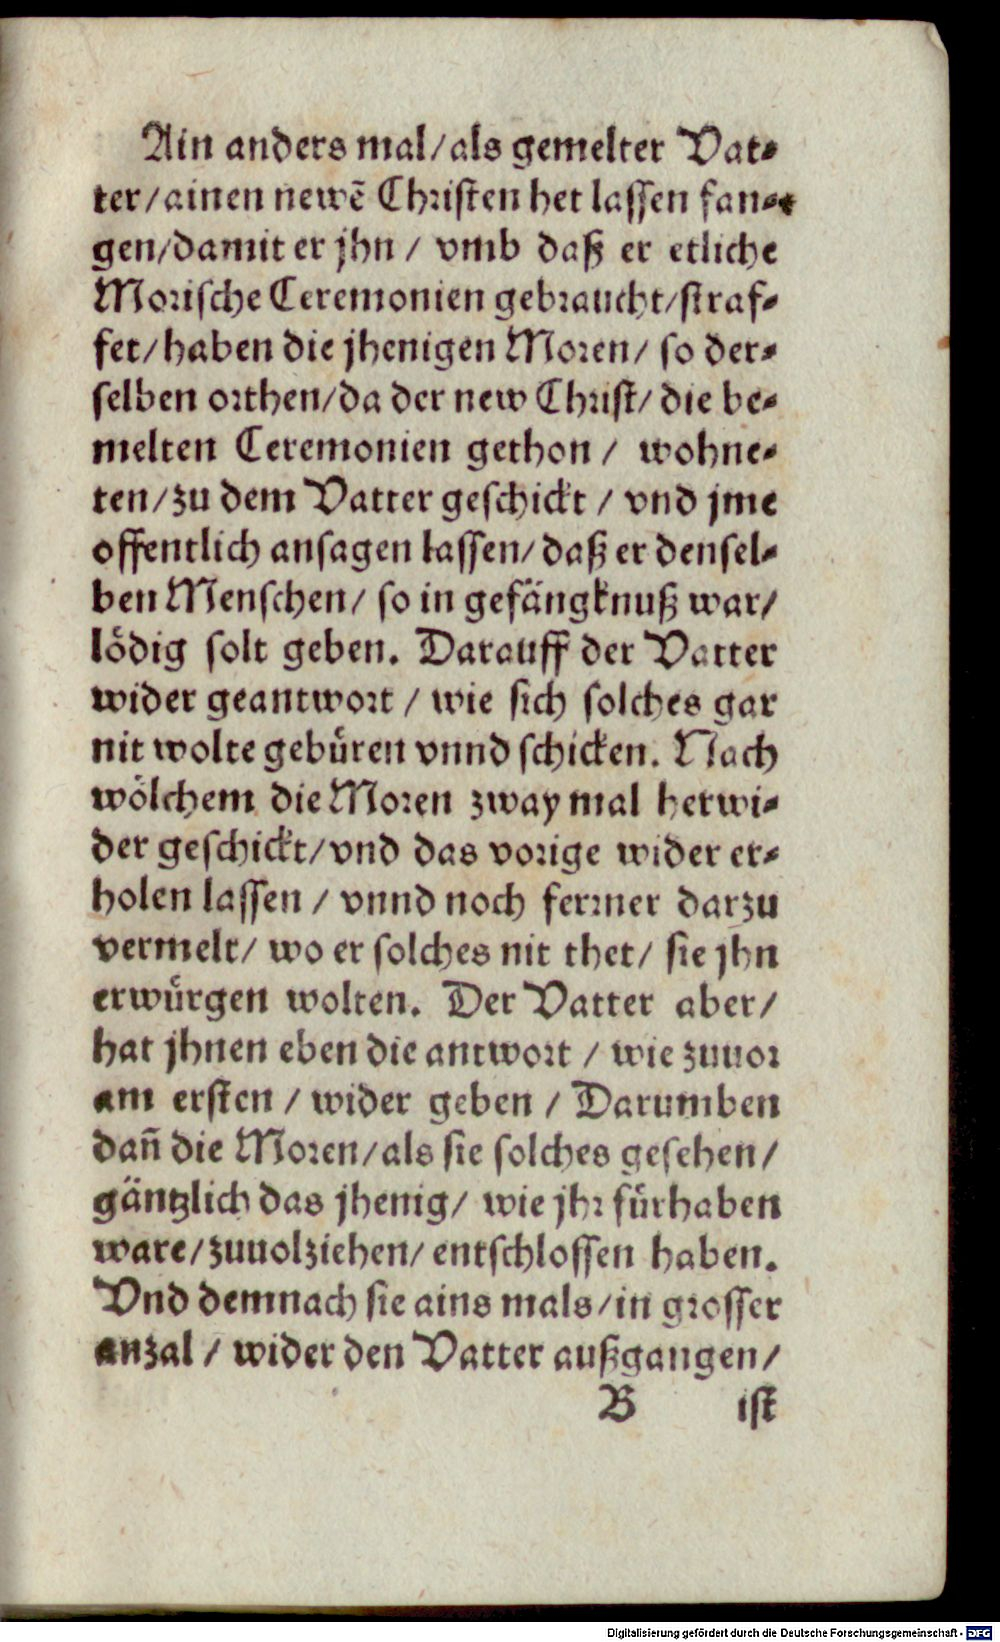 Ain anders mal/als gemelter Vat⸗
ter/ainen newẽ Christen het lassen fan⸗
gen/damit er jhn / vmb daß er etliche
Morische Ceremonien gebraucht/straf⸗
fet/haben die jhenigen Moren/ so der⸗
selben orthen/da der new Christ/ die be⸗
melten Ceremonien gethon / wohne⸗
ten/zu dem Vatter geschickt / vnd jme
offentlich ansagen lassen/daß er densel⸗
ben Menschen/ so in gefängknuß war/
lödig solt geben. Darauff der Vatter
wider geantwort / wie sich solches gar
nit wolte gebüren vnnd schicken. Nach
wölchem die Moren zway mal herwi⸗
der geschickt/vnd das vorige wider er⸗
holen lassen / vnnd noch ferrner darzu
vermelt/ wo er solches nit thet/ sie jhn
erwürgen wolten. Der Vatter aber/
hat jhnen eben die antwort / wie zuuor
am ersten / wider geben / Darumben
dañ die Moren/als sie solches gesehen/
gäntzlich das jhenig/ wie jhr fürhaben
ware/zuuolziehen/ entschlossen haben.
Vnd demnach sie ains mals/in grosser
anzal / wider den Vatter außgangen/
B ist
Digitalisierung gefördert durch die Deutsche Forschungsgemeinschaft - DFG